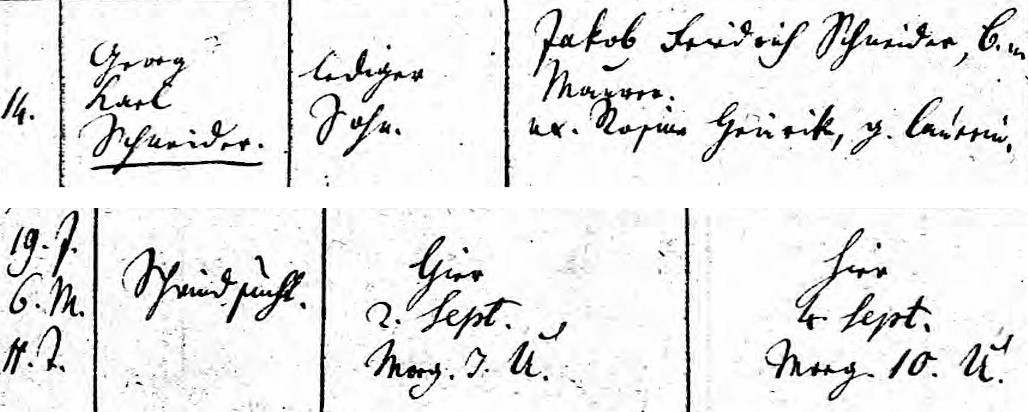 14.
Georg
Karl
Schneider.
lediger
Sohn.
Jakob Friedrich Schneider, B. u.
Maurer.
ux. Rosine Heinrike, g.
19. J.
6. M.
11. T.
Schwindsucht.
Hier
2. Sept.
Morg. 7. U.
hier
4. Sept.
Morg. 10. U.